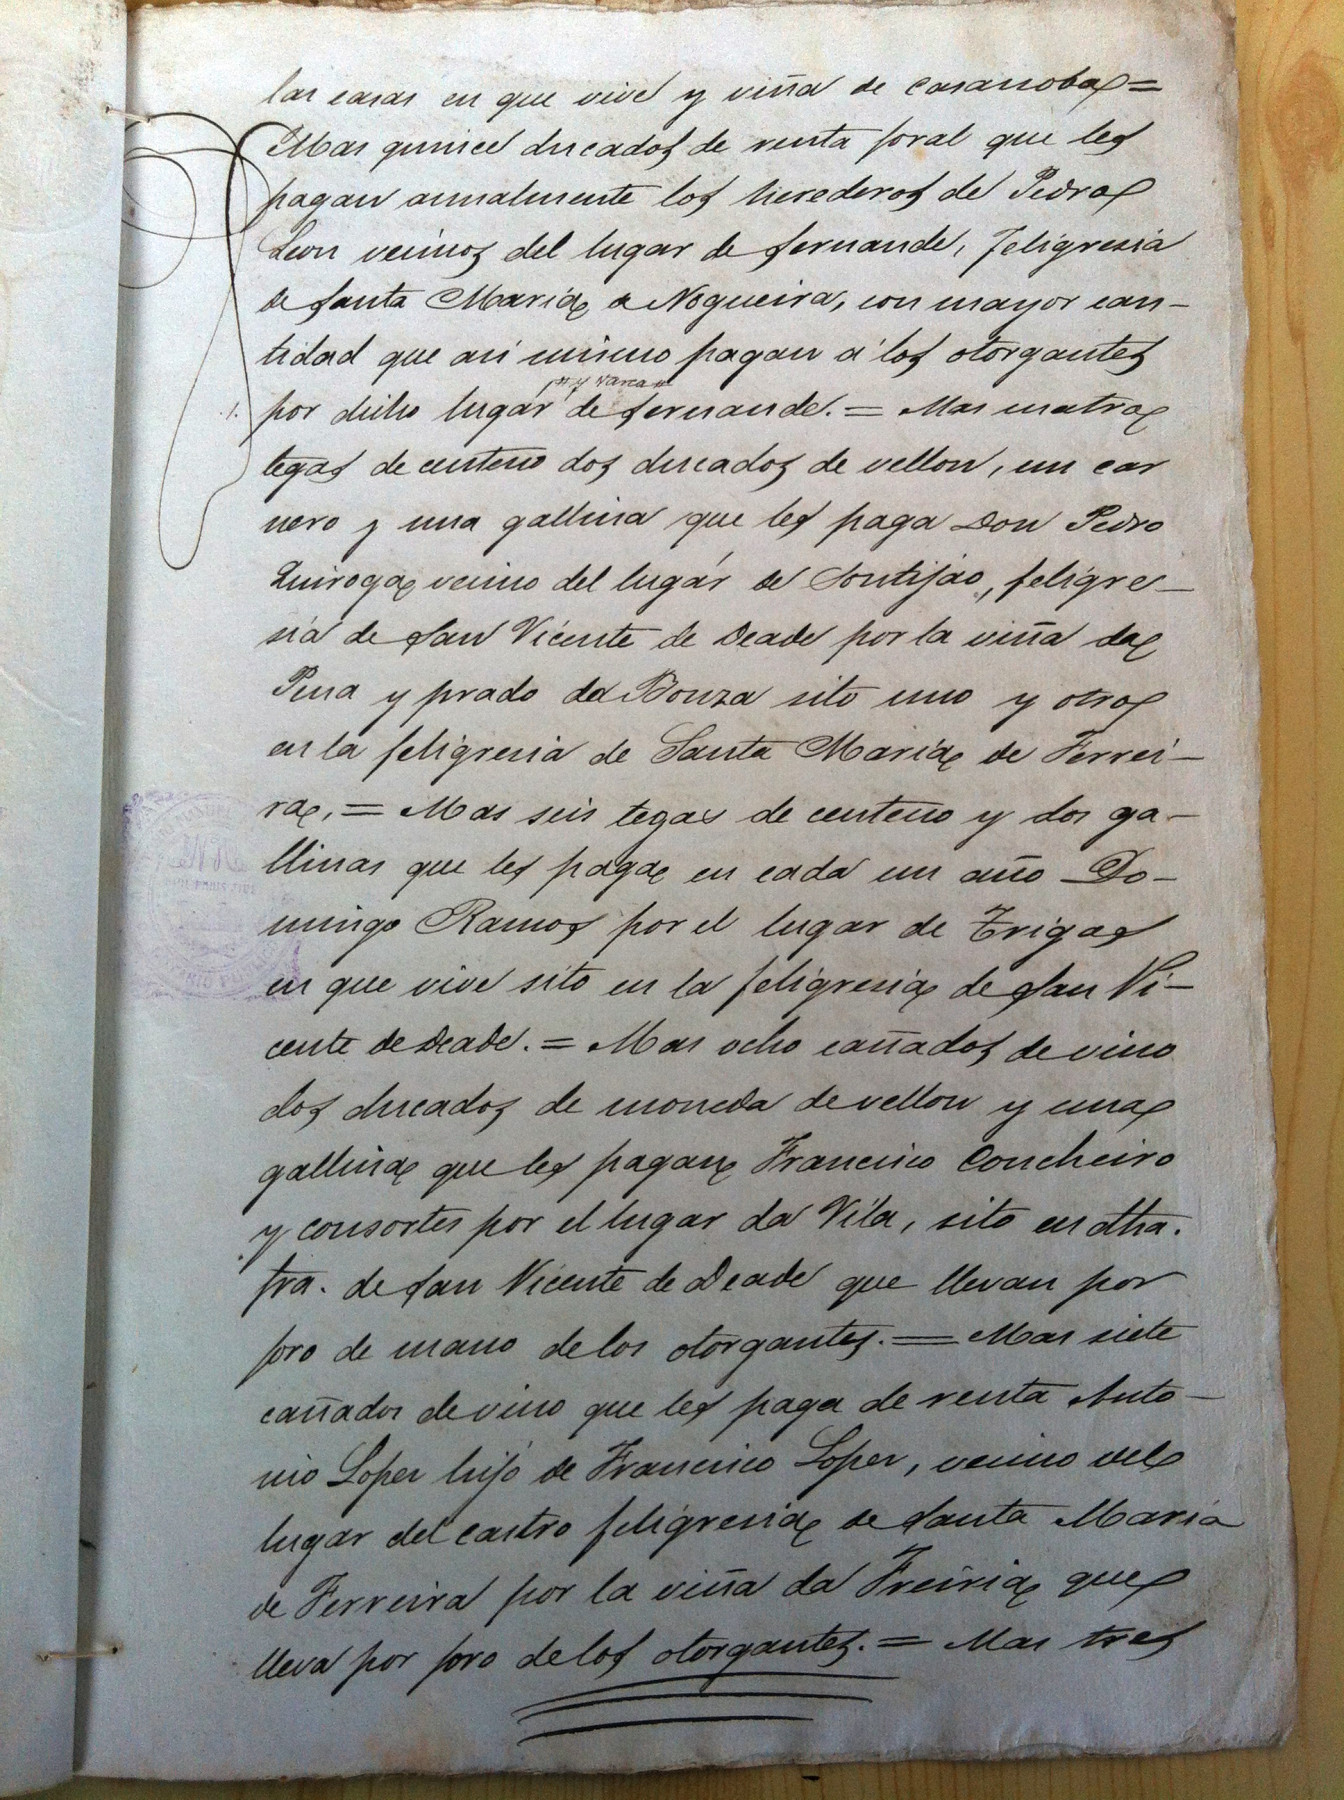 las casas en que vive y viña de Casanoba =
Mas quince ducados de renta foral que les
pagan annalmente los herederos de Pedro
Leon vecinos del lugar de fernande, feligresia
de Santa Maria a Nogueira, con mayor can-
tidad que asi mismo pagan a los otorgantes
por dicho lugar de fernande. = Mas cuatro
tegas de centeno dos ducados de vellon, un car
nero y una gallina que les paga Don Pedro
Quiroga vecino del lugar de Sontijao, feligre-
sia de San Vicente de Deade por la viña da
Pena y prado da Bouza sito uno y otro
en la feligresia de Santa Maria de Ferrei-
ra, = Mas seis tegas de centeno y dos ga-
llinas que les paga en cada un año Do-
mingo Ramos por el lugar de Trigas
en que vive sito en la feligresia de San Vi-
cente de Deade. = Mas ocho cañados de vino
dos ducados de moneda de vellon y una
gallina que les pagan Francisco Concheiro
y consortes por el lugar da Vila, sito en dha.
fra. de San Vicente de Deade que llevan por
foro de mano de los otorgantes. = Mas siete
cañados de vino que les paga de renta Anto-
nio Lopez hijo de Francisco Lopez, vecino del
lugar del castro feligresia de Santa Maria
de Ferreira por la viña da Freiria que
lleva por foro de los otorgantes. = Mas tres